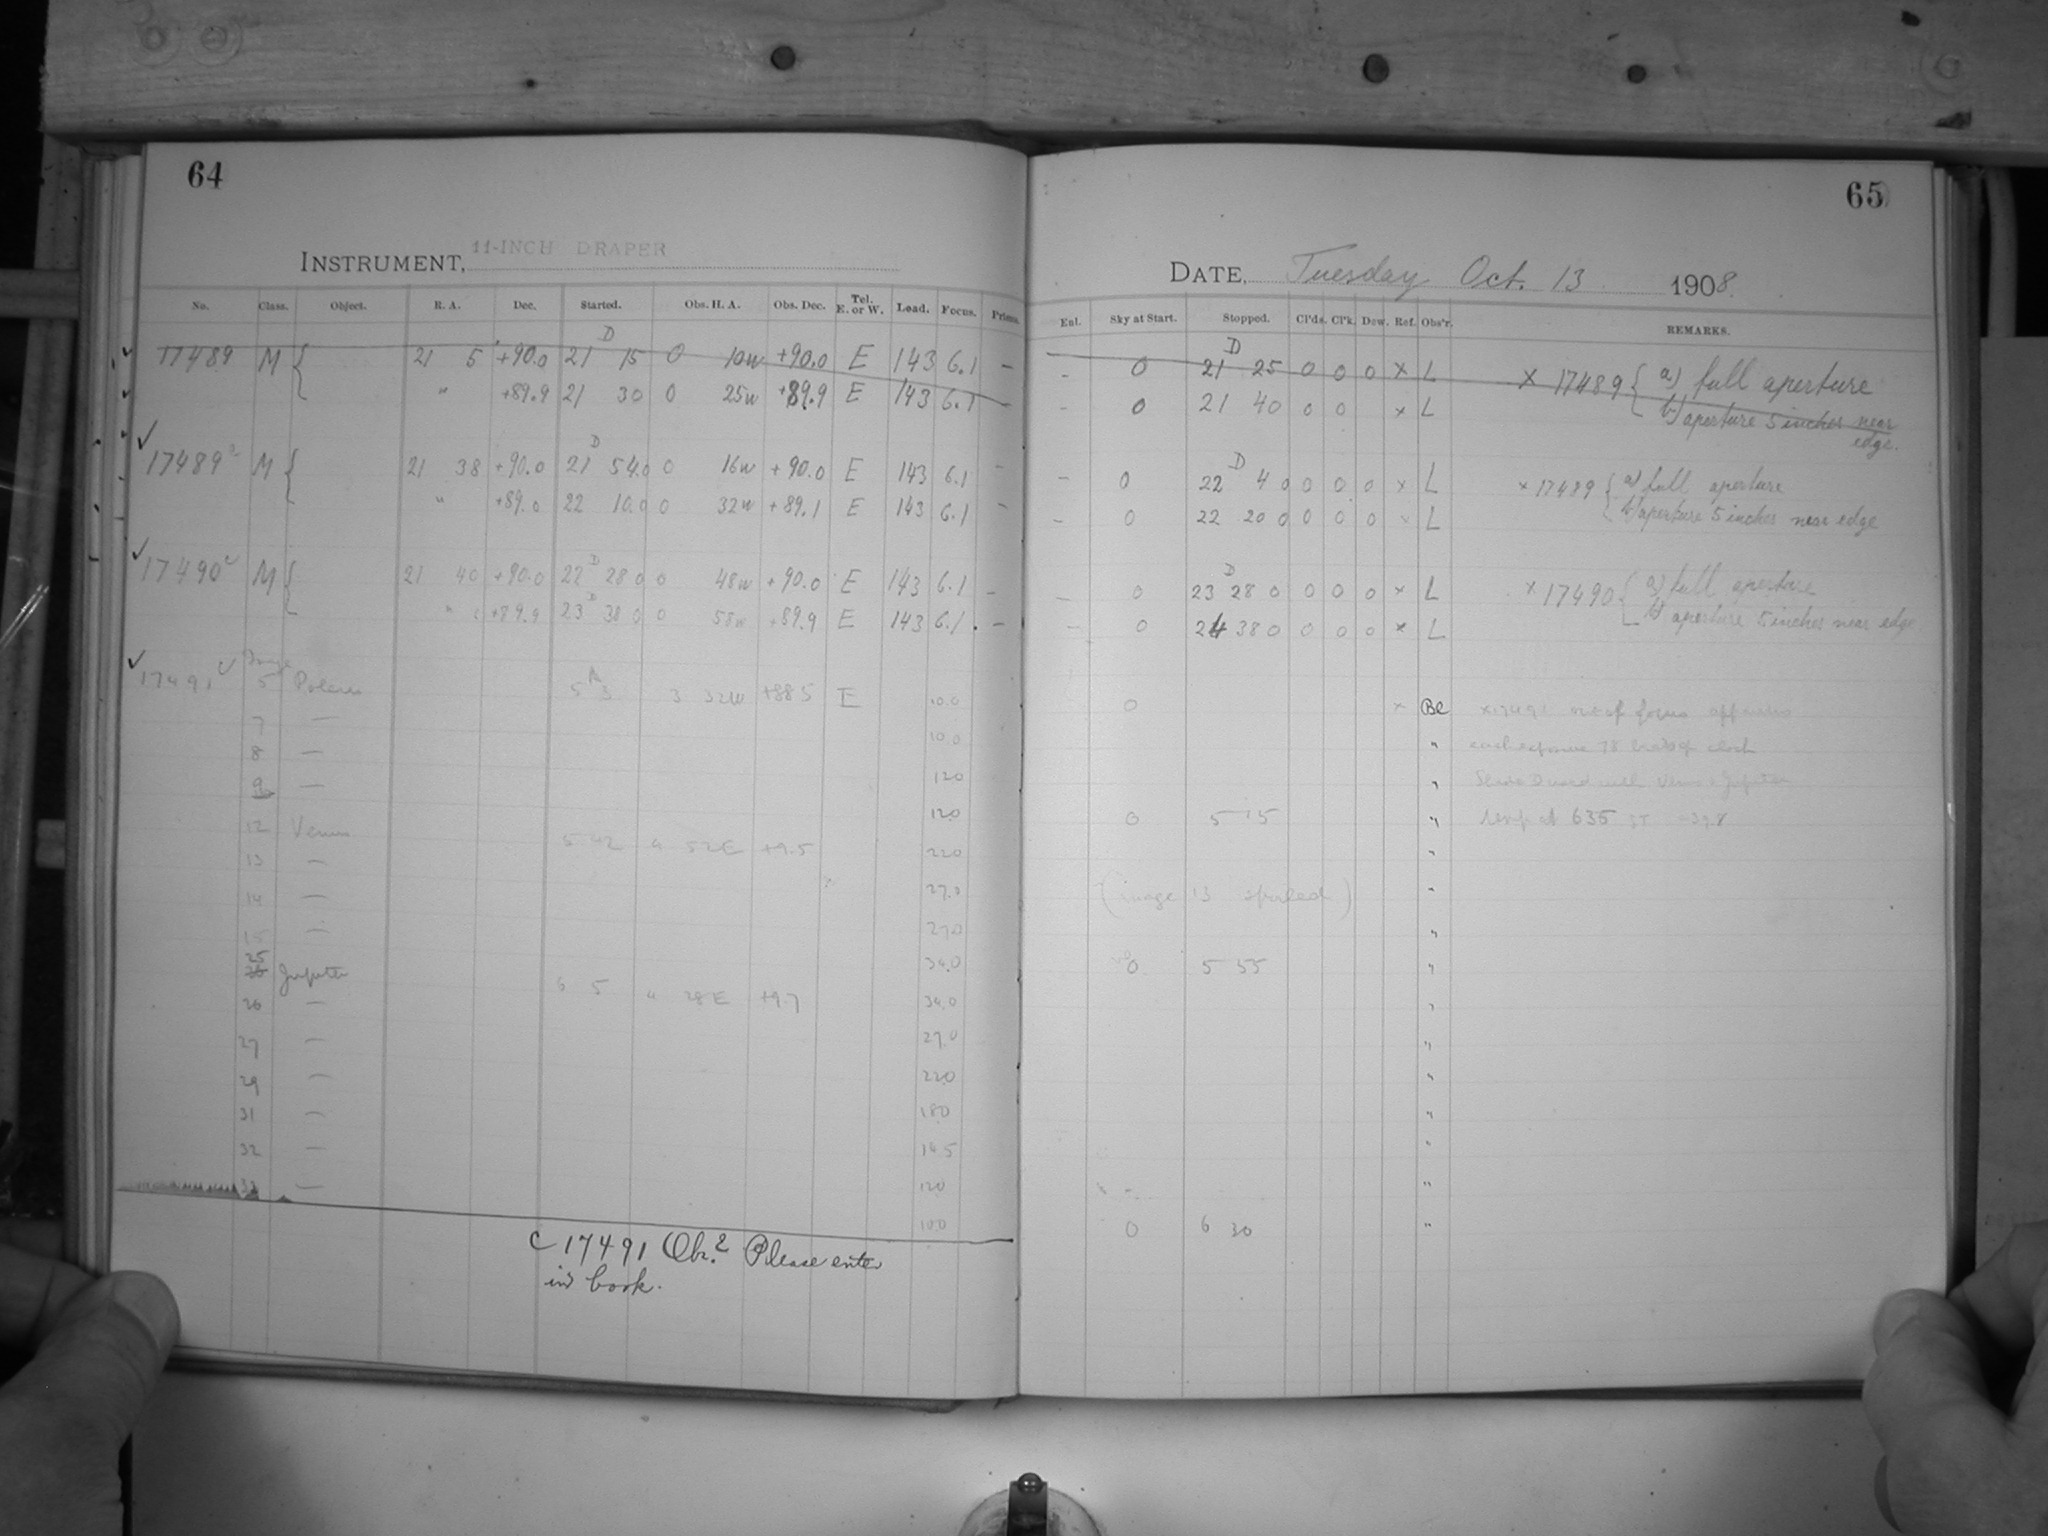 64
INSTRUMENT, 11-INCH DRAPER
No. Class. Object. R. A. Dec. Started. Obs. H. A. Obs. Dec. Tel. E. or W. Load. Focus.
D
17489 M { 21 5 +90.0 21 15 0 10w +90.0 E 143 6.1 –
" +89.9 21 30 0 25w +89.9 E 143 6.1 –
D
17489 M { 21 38 +90.0 21 54.0 0 16w +90.0 E 143 6.1 –
" +89.0 22 10.0 0 32w +89.1 E 143 6.1 –
D
17490 M { 21 40 +90.0 22 28 0 0 48w +90.0 E 143 6.1 –
D
" +89.9 23 38 0 0 58w +89.9 E 143 6.1 –
Image
17491 5 Polaris 5 3 3 32W +88 5 E 10.0
7 — 10.0
8 — 120
9 — 120
12 Venus 5 42 4 52E +9.5 220
13 — 27.0
14 — 270
15 —
25 Jupiter 6 5 4 28E +9.7 34.0
26 — 34.0
27 — 27.0
29 — 220
31 — 180
32 — 14.5
33 — 120
100
C 17491 Obs.? Please enter
in book.
65
DATE, Tuesday Oct. 13 1908
Ext. Sky at Start. Stopped. Cl'ds. Cl'k. Dew. Ref. Obs'r. REMARKS.
D
– 0 21 25 0 0 0 x L x 17489 { a) full aperture
– 0 21 40 0 0 x L b) aperture 5 inches near
edge.
D
– 0 22 4 0 0 0 0 x L x 17489 { a) full aperture
– 0 22 20 0 0 0 0 x L b) aperture 5 inches near edge
D
– 0 23 28 0 0 0 0 x L x 17490 { a) full aperture
– 0 24 38 0 0 0 0 x L b) aperture 5 inches near edge
0 x Be x 17491 out of focus apparatus
" each exposure 78 beats of clock
" Venus & Jupiter
0 5 15 " temp at 635
"
(image 13 spoiled) "
"
0 5 55 "
"
"
"
"
"
"
0 6 30 "